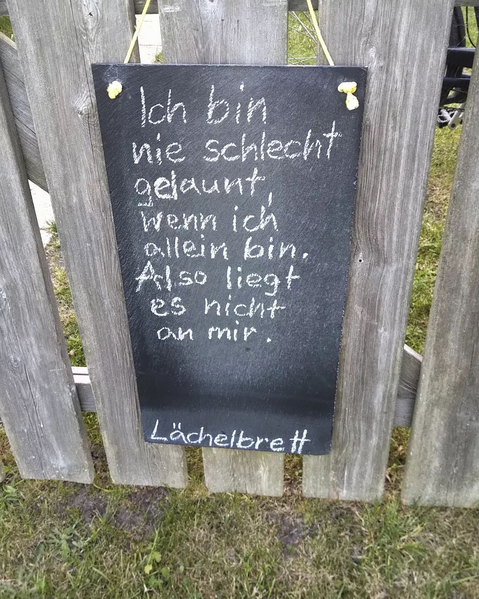 Ich bin
nie schlecht
gelaunt,
wenn ich
allein bin.
Also liegt
es nicht
an mir.
Lächelbrett